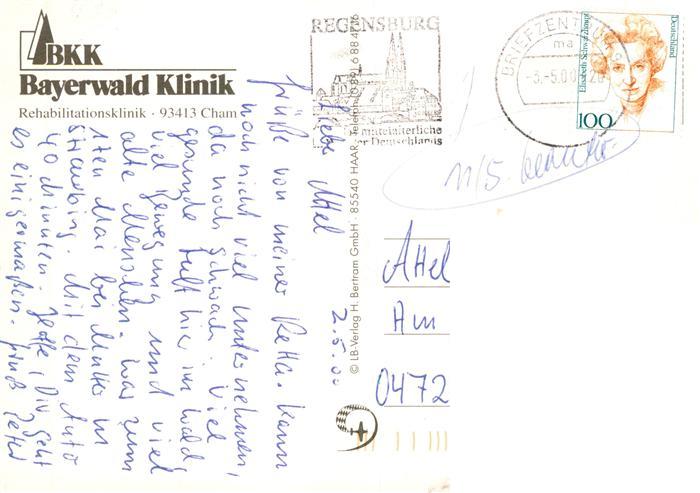 BKK
Bayerwald Klinik
Rehabilitationsklinik · 93413 Cham
2.5.00
Liebe Attel
Grüße von meiner Reha. Kann
noch nicht viel unternehmen,
da noch schwach. Viel
gesunde Luft hier im Wald,
viel Bewegung und viel
alte Menschen. War zum
1ten Mai bei Mutter in
Straubing. Mit dem Auto
40 Minuten. Hoffe, Dir geht
es einigermaßen. Gruß Peter
© LB-Verlag H. Bertram GmbH · 85540 HAAR · Telefon 0 89 / 6 88 47 16
REGENSBURG
mittelalterliche
Deutschlands
BRIEFZENTRUM
ma
-3.-5.00
Elisabeth Schwarzhaupt
Deutschland
100
11/5.
Attel
Am
0472